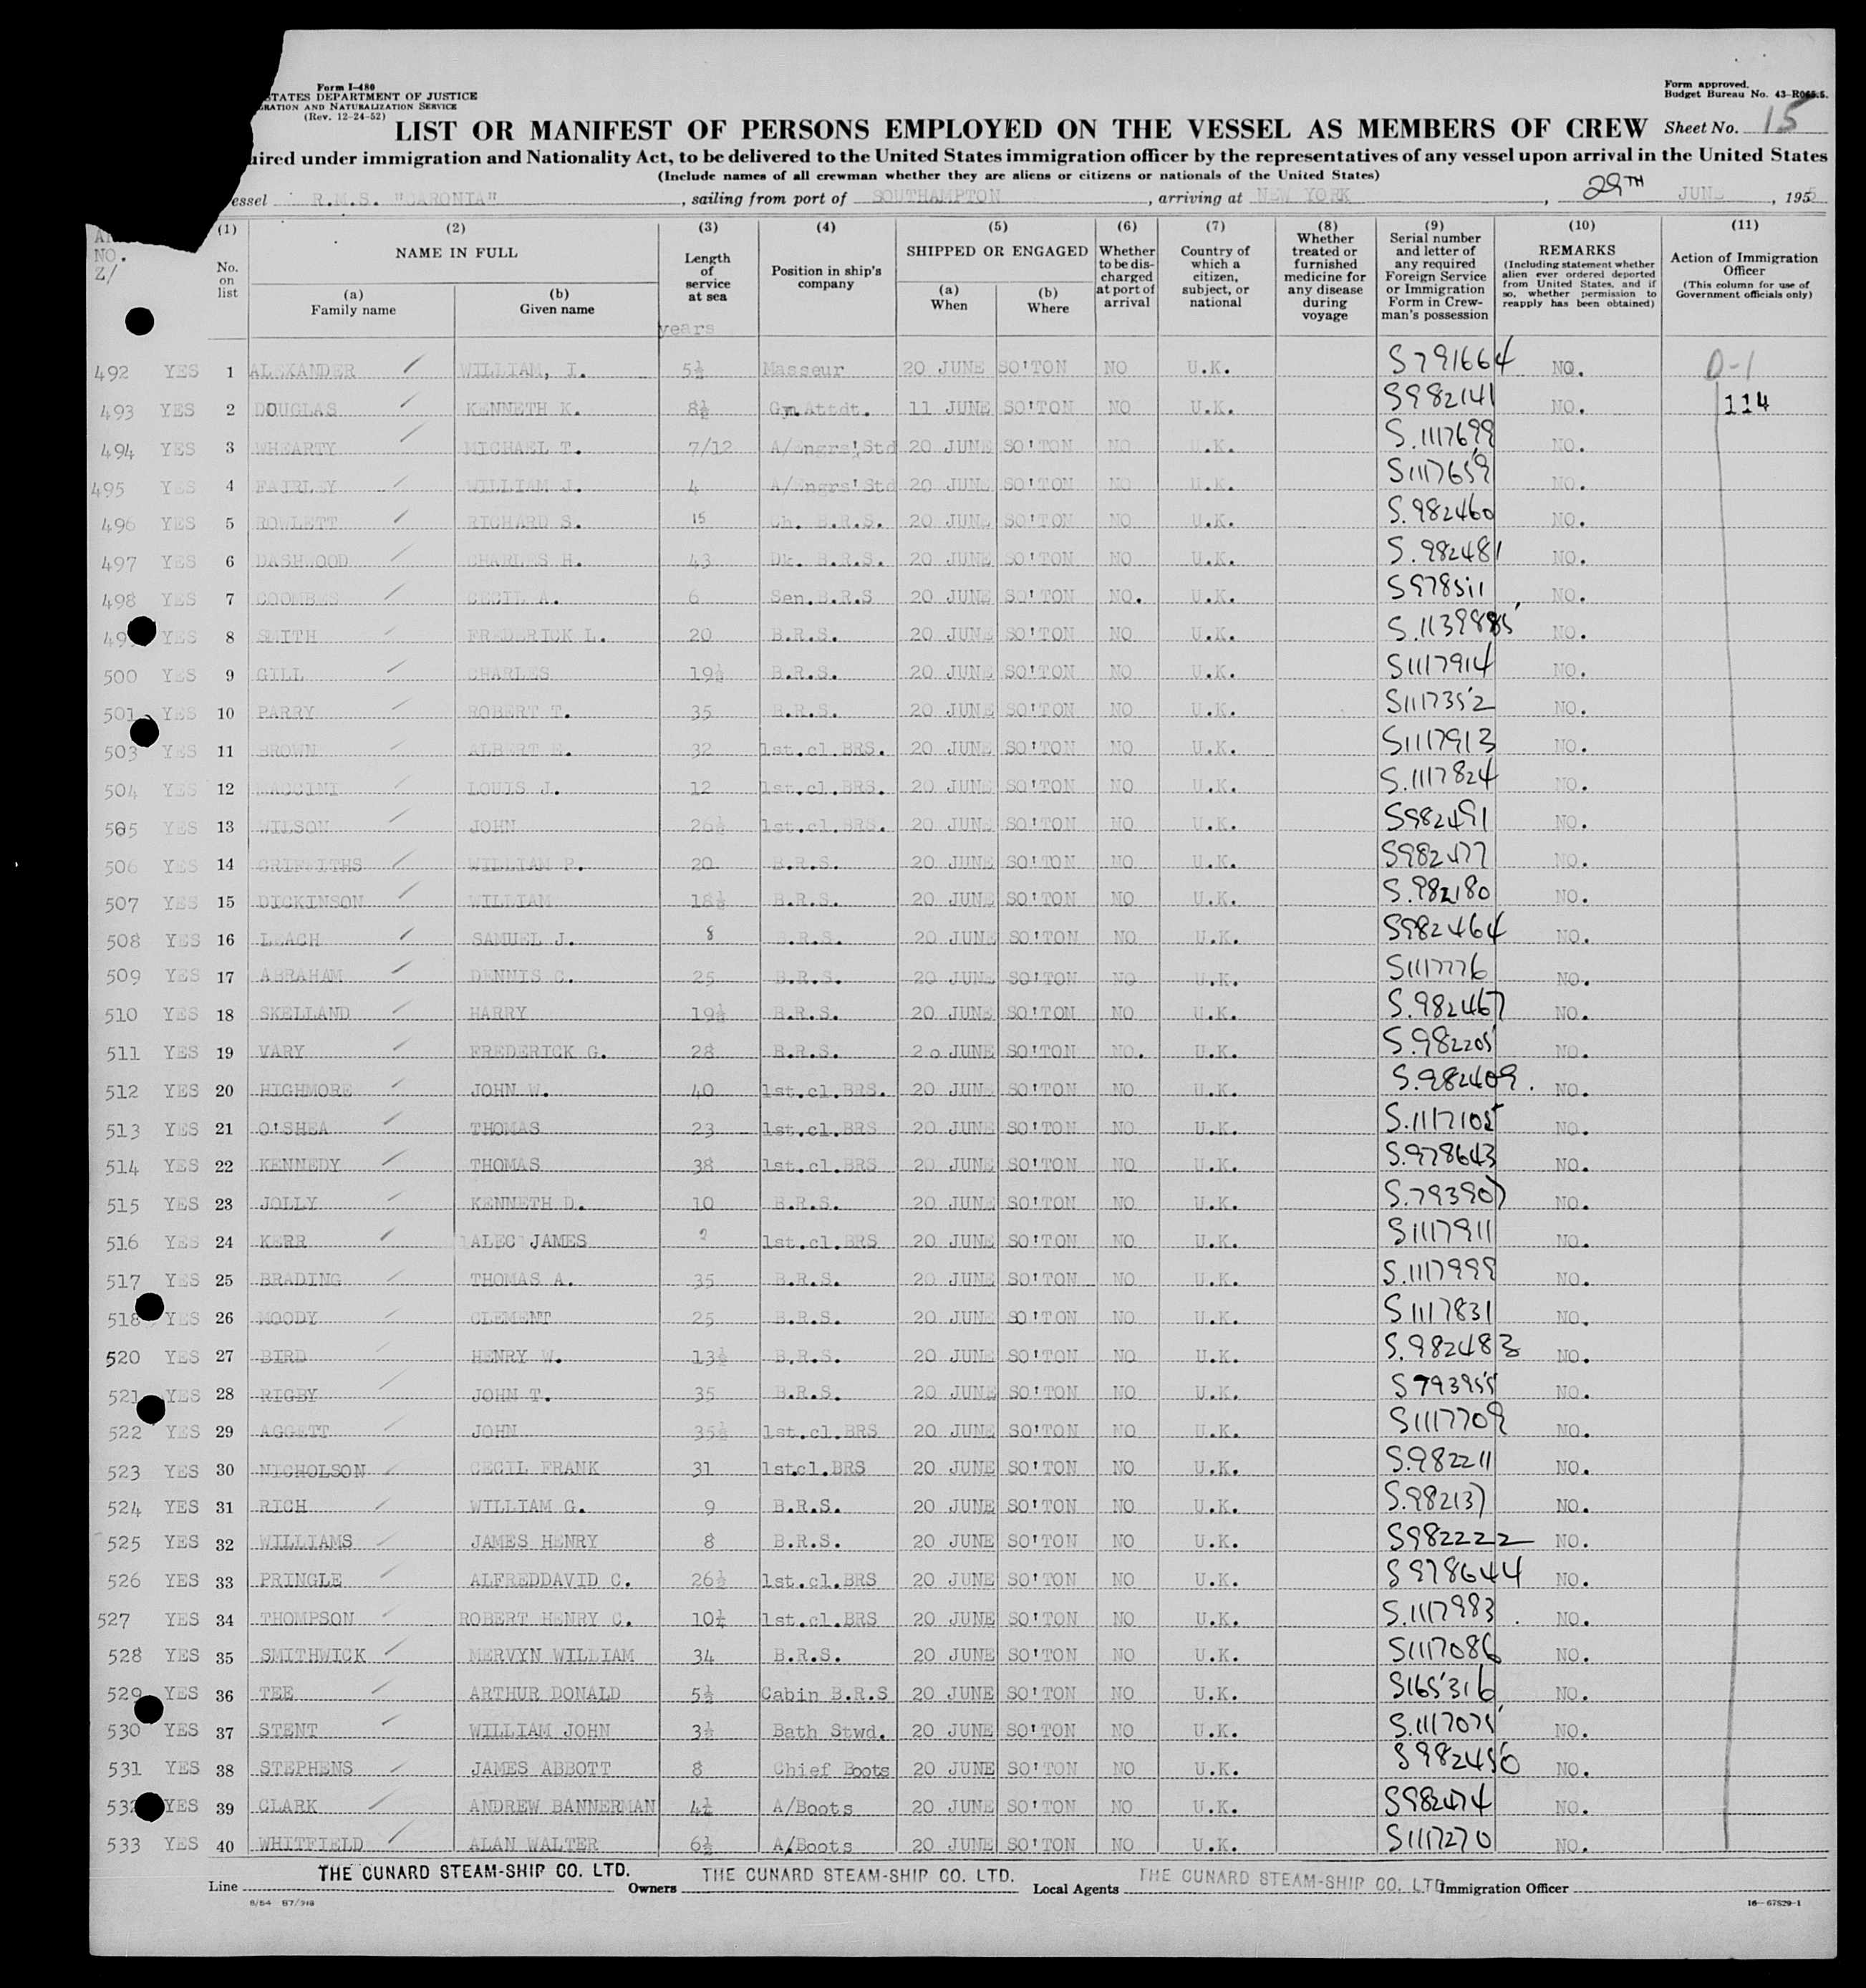 Form I-480
STATES DEPARTMENT OF JUSTICE
GRATION AND NATURALIZATION SERVICE
(Rev. 12-24-52)
Form approved.
Budget Bureau No. 43-R065.5.
LIST OR MANIFEST OF PERSONS EMPLOYED ON THE VESSEL AS MEMBERS OF CREW
Sheet No. 15
uired under immigration and Nationality Act, to be delivered to the United States immigration officer by the representatives of any vessel upon arrival in the United States
(Include names of all crewman whether they are aliens or citizens or nationals of the United States)
essel R.M.S. "CARONIA", sailing from port of SOUTHAMPTON, arriving at NEW YORK, 29TH JUNE, 1955
NO. Z/
(1) No. on list
(2) NAME IN FULL
(a) Family name
(b) Given name
(3) Length of service at sea
years
(4) Position in ship's company
(5) SHIPPED OR ENGAGED
(a) When
(b) Where
(6) Whether to be discharged at port of arrival
(7) Country of which a citizen, subject, or national
(8) Whether treated or furnished medicine for any disease during voyage
(9) Serial number and letter of any required Foreign Service or Immigration Form in Crewman's possession
(10) REMARKS (Including statement whether alien ever ordered deported from United States, and if so, whether permission to reapply has been obtained)
(11) Action of Immigration Officer (This column for use of Government officials only)
492 YES 1 ALEXANDER WILLIAM, I. 5½ Masseur 20 JUNE SO'TON NO U.K. S791664 NO. D-1
493 YES 2 DOUGLAS KENNETH K. 8½ Gym Attdt. 11 JUNE SO'TON NO U.K. S982141 NO. 114
494 YES 3 WHEARTY MICHAEL T. 7/12 A/Engrs'Std 20 JUNE SO'TON NO U.K. S.1117699 NO.
495 YES 4 FAIRLEY WILLIAM J. 4 A/Engrs'Std 20 JUNE SO'TON NO U.K. S1117659 NO.
496 YES 5 ROWLETT RICHARD S. 15 Ch. B.R.S. 20 JUNE SO'TON NO U.K. S.982460 NO.
497 YES 6 DASHWOOD CHARLES H. 43 Dk. B.R.S. 20 JUNE SO'TON NO U.K. S.982481 NO.
498 YES 7 COOMBES CECIL A. 6 Sen.B.R.S 20 JUNE SO'TON NO. U.K. S978511 NO.
49 YES 8 SMITH FREDERICK L. 20 B.R.S. 20 JUNE SO'TON NO U.K. S.1139885 NO.
500 YES 9 GILL CHARLES 19½ B.R.S. 20 JUNE SO'TON NO U.K. S1117914 NO.
501 YES 10 PARRY ROBERT T. 35 B.R.S. 20 JUNE SO'TON NO U.K. S1117352 NO.
503 YES 11 BROWN ALBERT E. 32 1st.cl.BRS. 20 JUNE SO'TON NO U.K. S1117913 NO.
504 YES 12 LOUIS J. 12 1st.cl.BRS. 20 JUNE SO'TON NO U.K. S.1117824 NO.
505 YES 13 WILSON JOHN 26½ 1st.cl.BRS. 20 JUNE SO'TON NO U.K. S982491 NO.
506 YES 14 GRIFFITHS WILLIAM P. 20 B.R.S. 20 JUNE SO'TON NO U.K. S982477 NO.
507 YES 15 DICKINSON WILLIAM 18½ B.R.S. 20 JUNE SO'TON NO U.K. S.982180 NO.
508 YES 16 LEACH SAMUEL J. 8 B.R.S. 20 JUNE SO'TON NO U.K. S982464 NO.
509 YES 17 ABRAHAM DENNIS C. 25 B.R.S. 20 JUNE SO'TON NO U.K. S1117776 NO.
510 YES 18 SKELLAND HARRY 19½ B.R.S. 20 JUNE SO'TON NO U.K. S.982467 NO.
511 YES 19 VARY FREDERICK G. 28 B.R.S. 2o JUNE SO'TON NO. U.K. S.982205 NO.
512 YES 20 HIGHMORE JOHN W. 40 1st.cl.BRS. 20 JUNE SO'TON NO U.K. S.982409. NO.
513 YES 21 O'SHEA THOMAS 23 1st.cl.BRS 20 JUNE SO'TON NO U.K. S.1117105 NO.
514 YES 22 KENNEDY THOMAS 38 1st.cl.BRS 20 JUNE SO'TON NO U.K. S.978643 NO.
515 YES 23 JOLLY KENNETH D. 10 B.R.S. 20 JUNE SO'TON NO U.K. S.793907 NO.
516 YES 24 KERR ALEC JAMES 1st.cl.BRS 20 JUNE SO'TON NO U.K. S1117911 NO.
517 YES 25 BRADING THOMAS A. 35 B.R.S. 20 JUNE SO'TON NO U.K. S.1117999 NO.
518 YES 26 MOODY CLEMENT 25 B.R.S. 20 JUNE SO'TON NO U.K. S1117831 NO.
520 YES 27 BIRD HENRY W. 13½ B.R.S. 20 JUNE SO'TON NO U.K. S.982483 NO.
521 YES 28 RIGBY JOHN T. 35 B.R.S. 20 JUNE SO'TON NO U.K. S793955 NO.
522 YES 29 AGGETT JOHN 35½ 1st.cl.BRS 20 JUNE SO'TON NO U.K. S1117709 NO.
523 YES 30 NICHOLSON CECIL FRANK 31 1stcl.BRS 20 JUNE SO'TON NO U.K. S.982211 NO.
524 YES 31 RICH WILLIAM G. 9 B.R.S. 20 JUNE SO'TON NO U.K. S.982137 NO.
525 YES 32 WILLIAMS JAMES HENRY 8 B.R.S. 20 JUNE SO'TON NO U.K. S982222 NO.
526 YES 33 PRINGLE ALFREDDAVID C. 26½ 1st.cl.BRS 20 JUNE SO'TON NO U.K. S978644 NO.
527 YES 34 THOMPSON ROBERT HENRY C. 10¼ 1st.cl.BRS 20 JUNE SO'TON NO U.K. S.1117983. NO.
528 YES 35 SMITHWICK MERVYN WILLIAM 34 B.R.S. 20 JUNE SO'TON NO U.K. S1117086 NO.
529 YES 36 TEE ARTHUR DONALD 5½ Cabin B.R.S 20 JUNE SO'TON NO U.K. S165316 NO.
530 YES 37 STENT WILLIAM JOHN 3½ Bath Stwd. 20 JUNE SO'TON NO U.K. S.1117075 NO.
531 YES 38 STEPHENS JAMES ABBOTT 8 Chief Boots 20 JUNE SO'TON NO U.K. S982450 NO.
532 YES 39 CLARK ANDREW BANNERMAN 4½ A/Boots 20 JUNE SO'TON NO U.K. S982474 NO.
533 YES 40 WHITFIELD ALAN WALTER 6½ A/Boots 20 JUNE SO'TON NO U.K. S1117270 NO.
Line THE CUNARD STEAM-SHIP CO. LTD. Owners THE CUNARD STEAM-SHIP CO. LTD. Local Agents THE CUNARD STEAM-SHIP CO. LTD Immigration Officer
8/54 57/918
16—67529-1